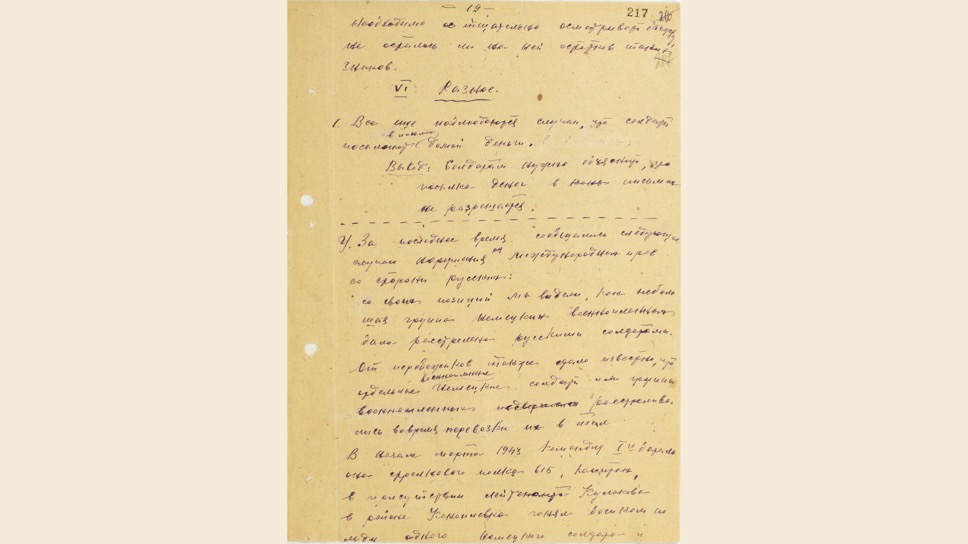 - 19 -
217
необходимо тщательно осмотривать
не осталось ли на ней остатков
знаков.
VI. Разное.
1. Все еще наблюдаются случаи, что солдаты
в письмах
посылают домой деньги.
Вывод: Солдатам нужно объяснить, что
посылка денег в письмах
не разрешается.
2. За последнее время сообщались следующие
случаи нарушения международных прав
со стороны русских:
со своих позиций мы видели, как неболь
шая группа немецких военнопленных
была расстреляна русскими солдатами.
От перебежчиков также стало известно, что
военнопленные
отдельные немецкие солдаты или группы
военнопленных расстрелива
лись вовремя перевозки их в тыл
В начале марта 1943 командир I го баталь
она стрелкового полка 615, капитан,
в присутствии лейтенанта Кулакова
в районе гонял босиком по
льду одного немецкого солдата и